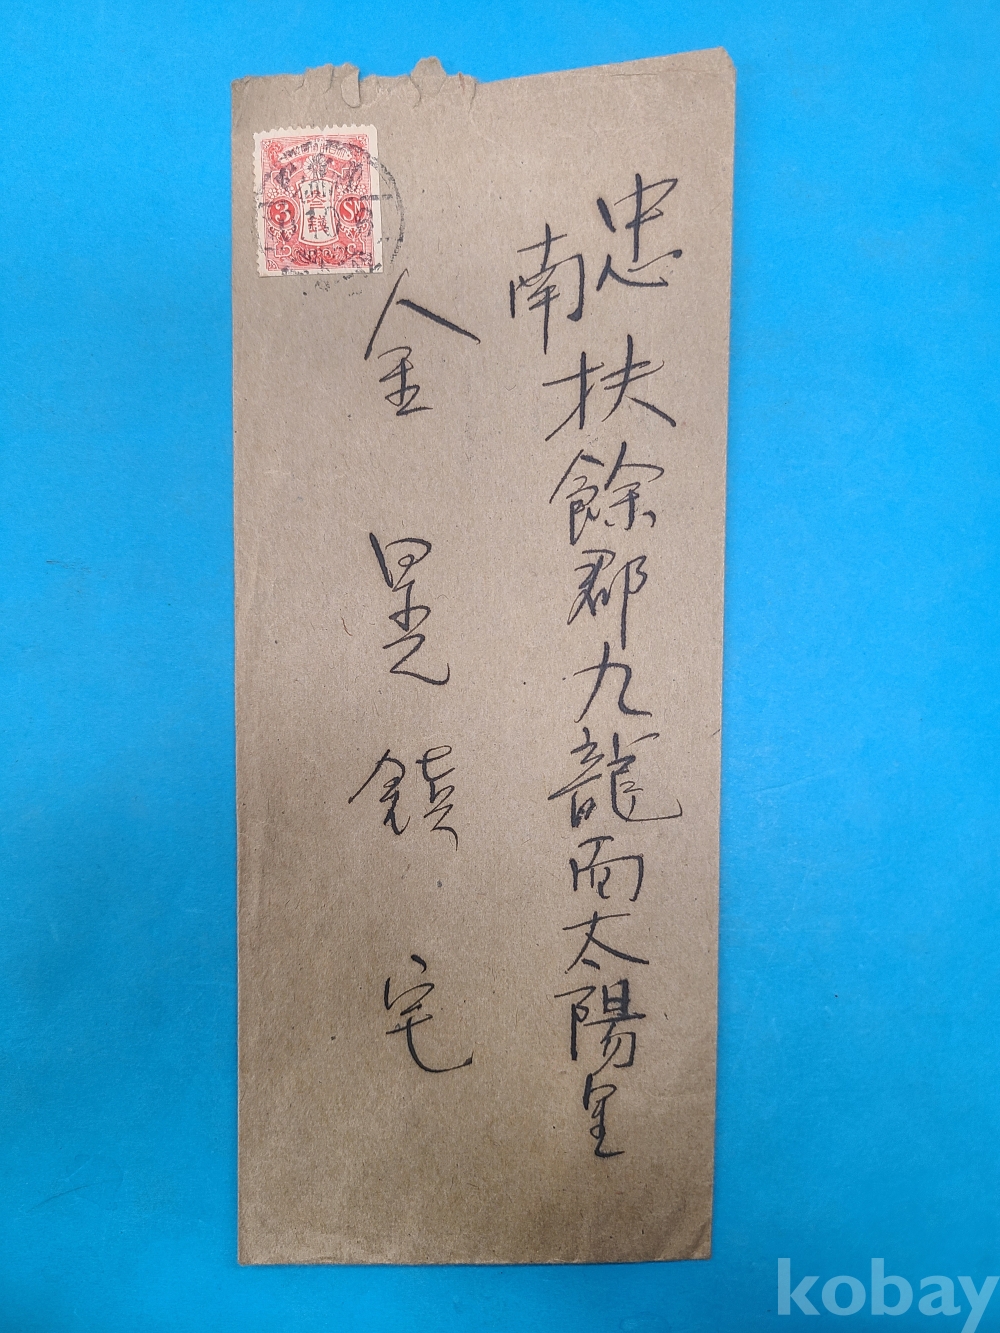 忠南扶餘郡九龍面太陽里
金晃鎮宅
3
Sn
参銭
kobay